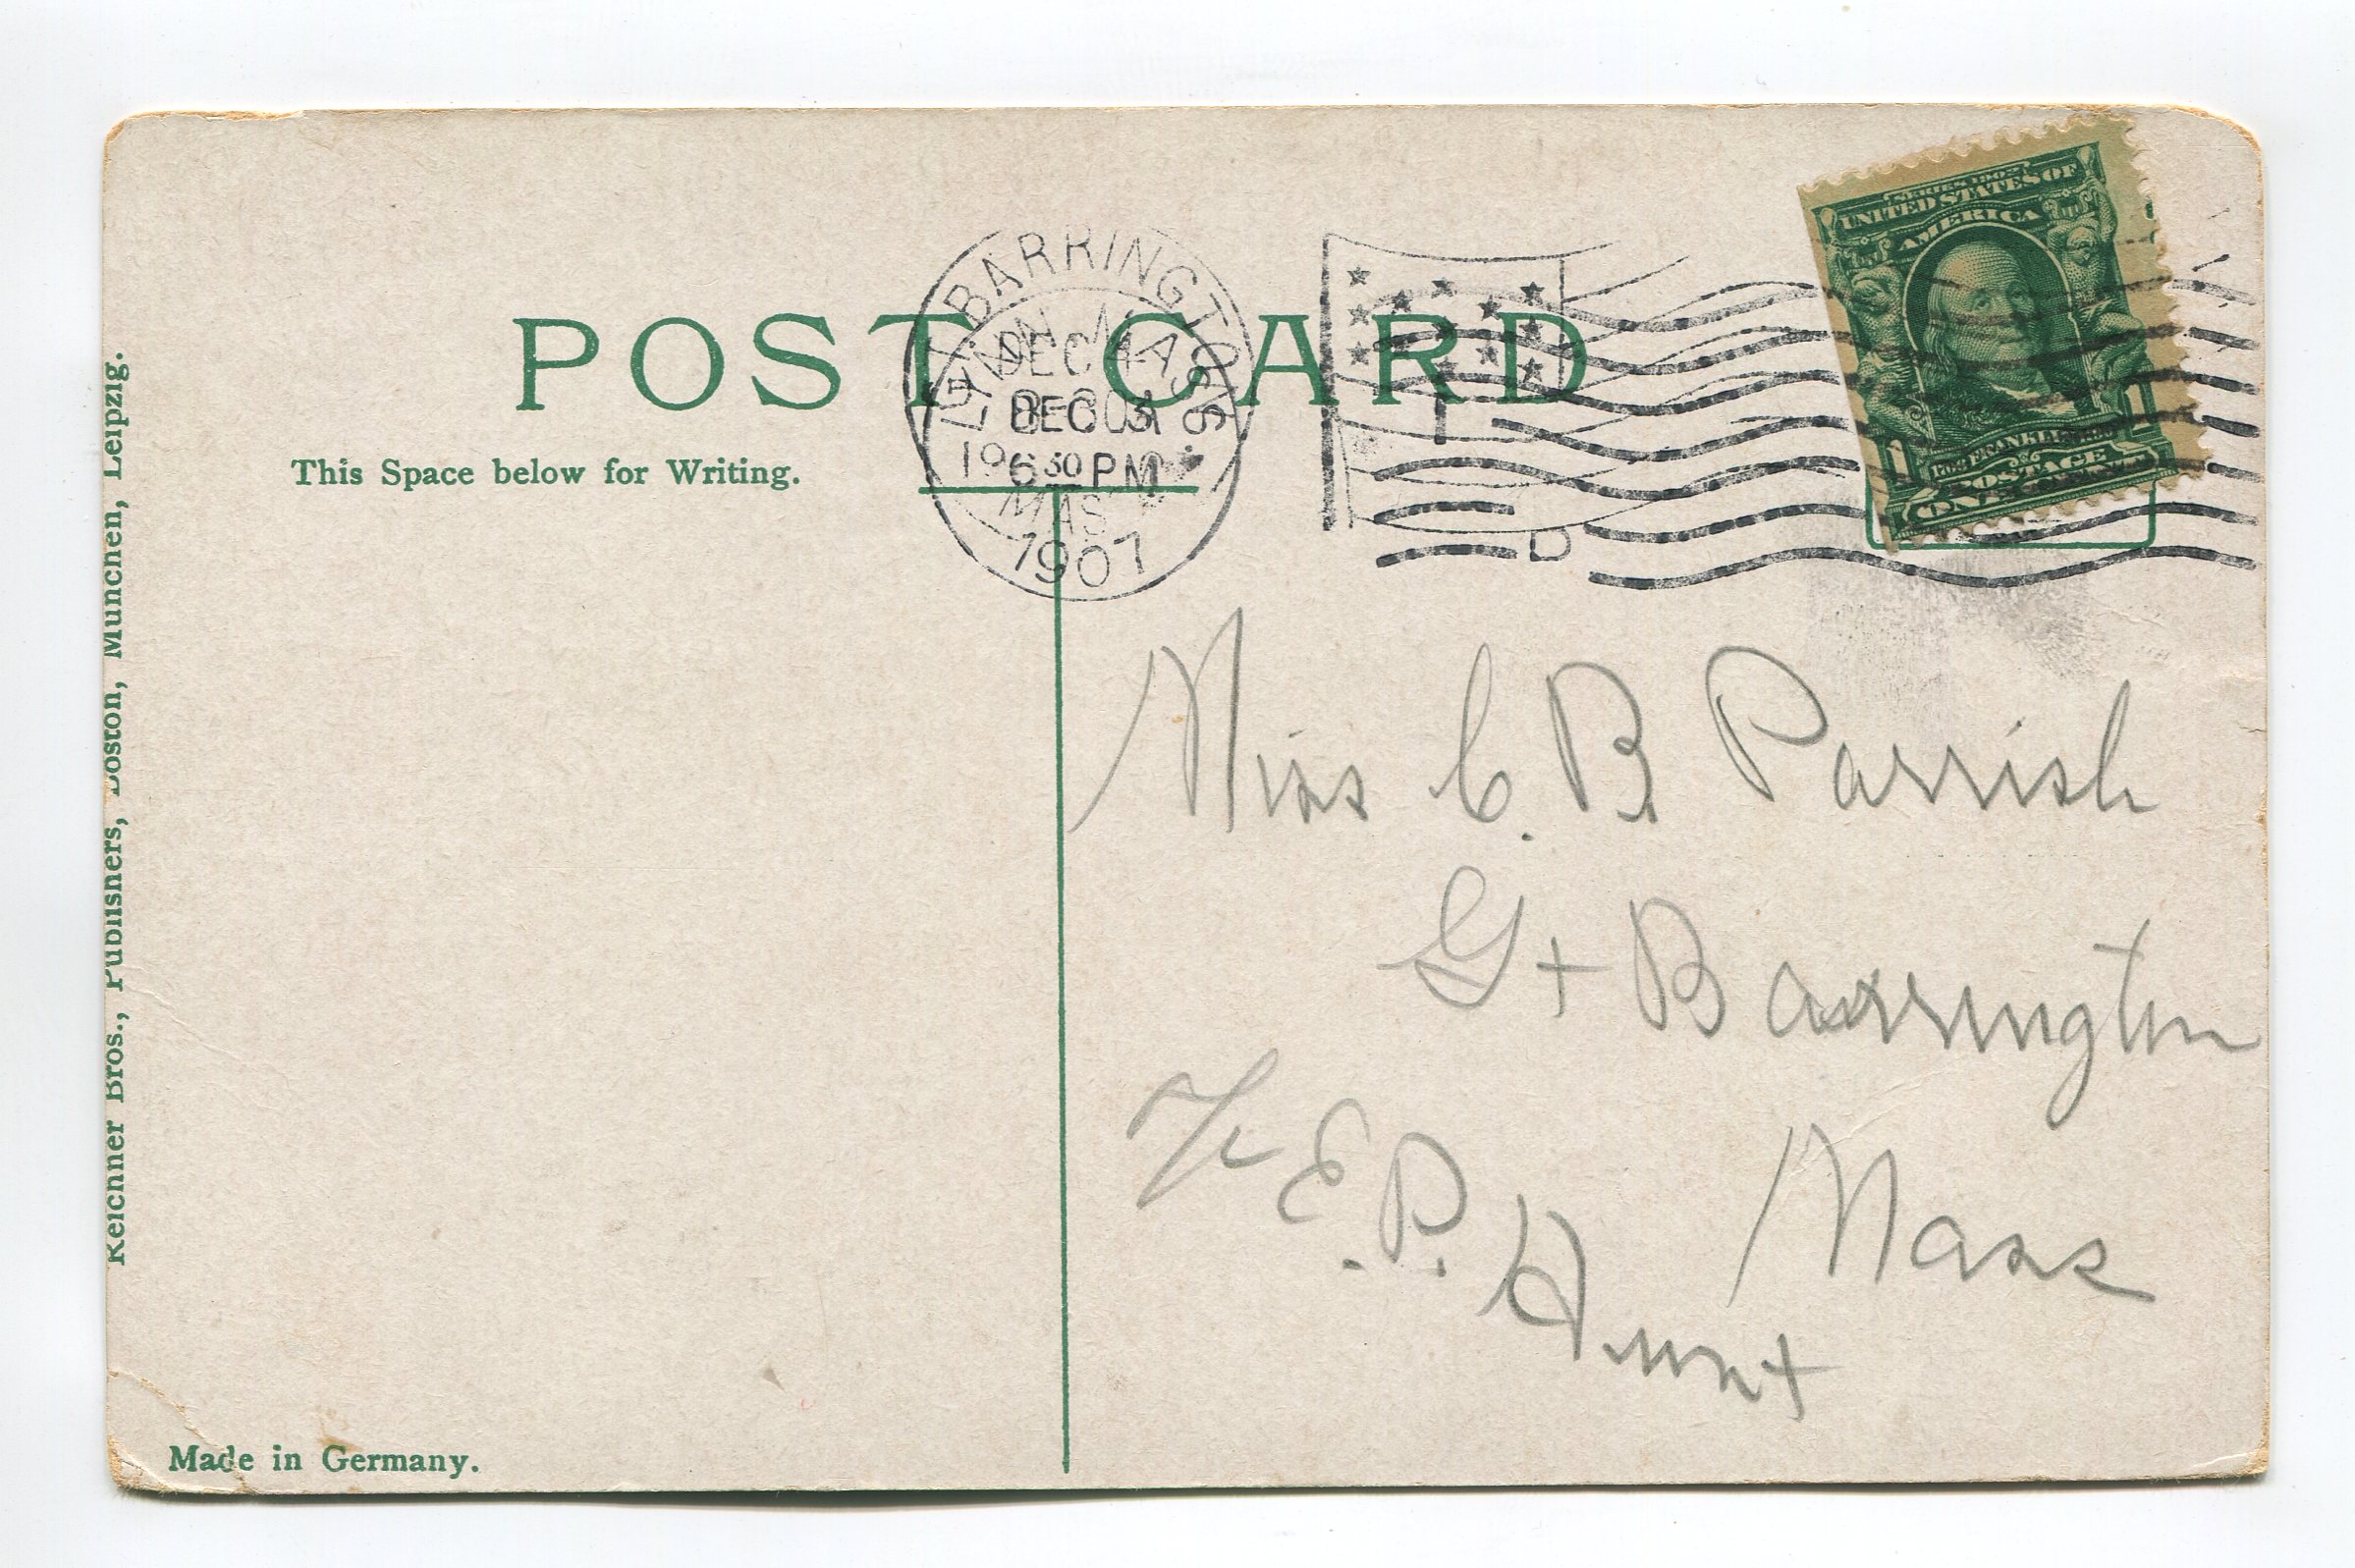 POST CARD
This Space below for Writing.
GT. BARRINGTON
LYNN MASS
DEC 4
DEC 3
6 30 PM
MASS
1907
1
D
SERIES 1902
UNITED STATES OF
AMERICA
FRANKLIN
POSTAGE
1 1
ONE CENT
Miss C. B Parrish
Gt Barrington
Mass
℅ E. P. Hunt
Reichner Bros., Publishers, Boston, Munchen, Leipzig.
Made in Germany.